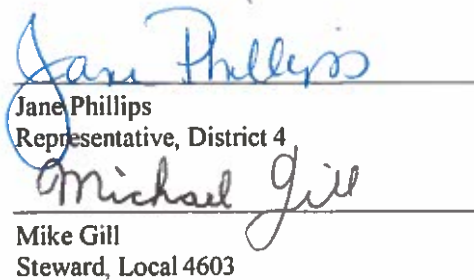 Jane Phillips
Jane Phillips
Representative, District 4
Michael Gill
Mike Gill
Steward, Local 4603